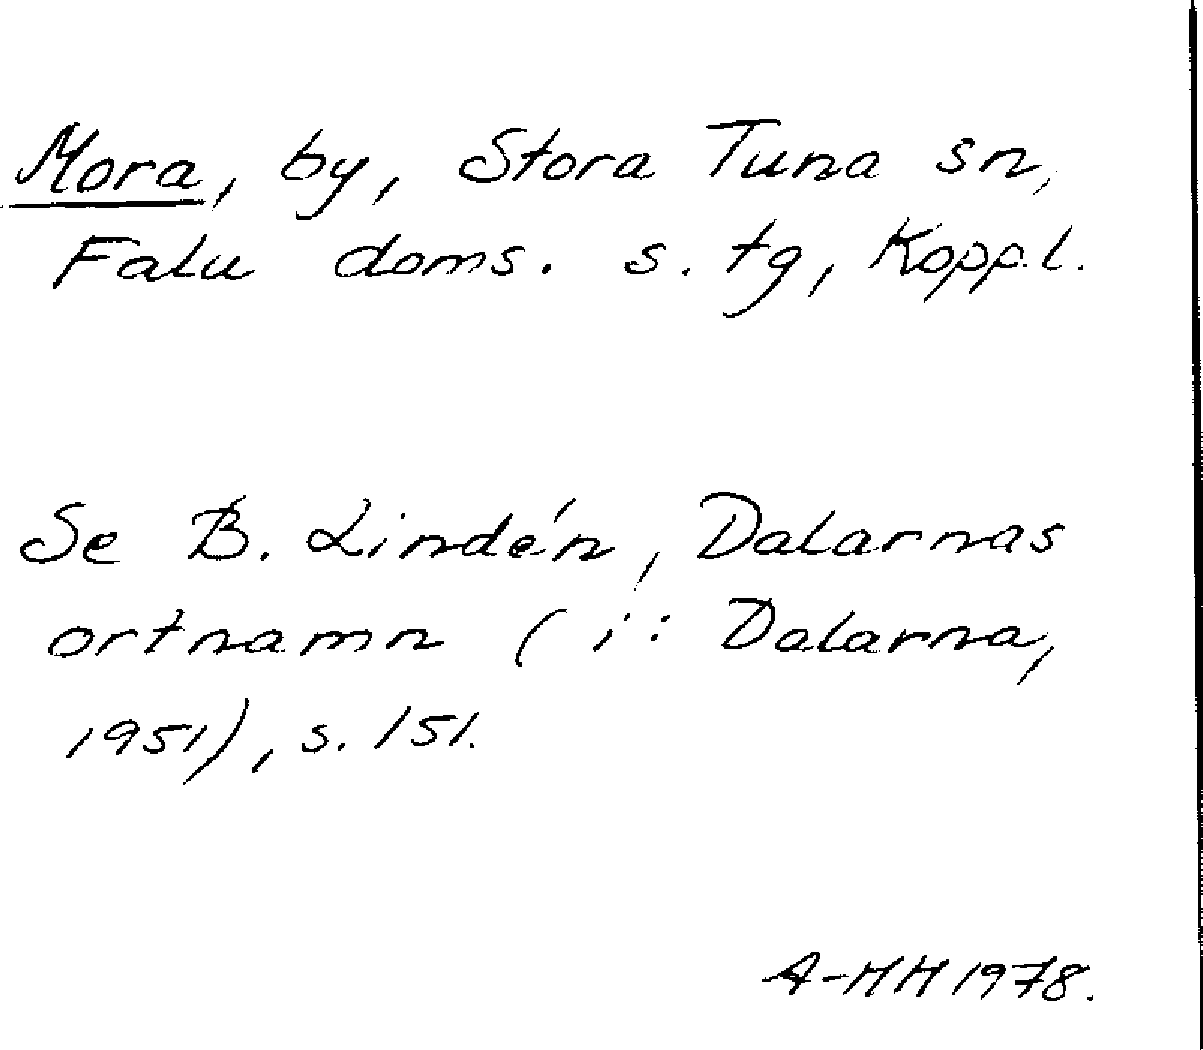 Mora, by, Stora Tuna sn,
Falu doms. s. tg, Koppl.
Se B. Lindén, Dalarnas
ortnamn (i: Dalarna,
1951), s. 151.
A-HH 1978.